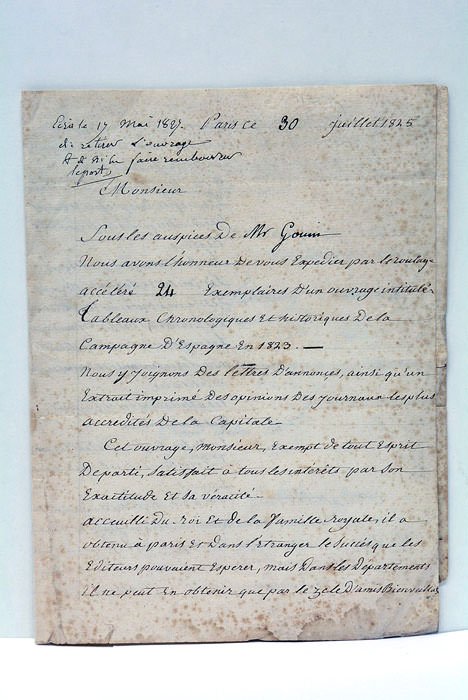 Ecris le 17 Mai 1827. Paris Ce 30 Juillet 1825
de retirer l'ouvrage
faire rembourser
le port
Monsieur
Sous les auspices De Mr Gouin
Nous avons l'honneur De vous Expedier par le roulage
accéléré 24 Exemplaires D'un ouvrage intitulé
Tableaux Chronologiques Et historiques De la
Campagne D'Espagne En 1823. —
Nous y joignons Des lettres D'annonces, ainsi qu'un
Extrait imprimé Des opinions Des journaux les plus
accredités De la Capitale
Cet ouvrage, Monsieur, Exempt de tout Esprit
De parti, Satisfait à tous les interêts par Son
Exactitude Et sa veracité
accueilli Du Roi Et de la famille Royale, il a
obtenu à paris Et Dans l'Etranger le Succès que les
Editeurs pouvaient Esperer, mais Dans les Departements
il ne peut En obtenir que par le zele D'amis Bienveillan